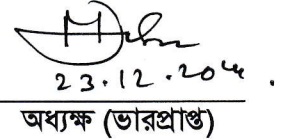 23.12.20
অধ্যক্ষ (ভারপ্রাপ্ত)